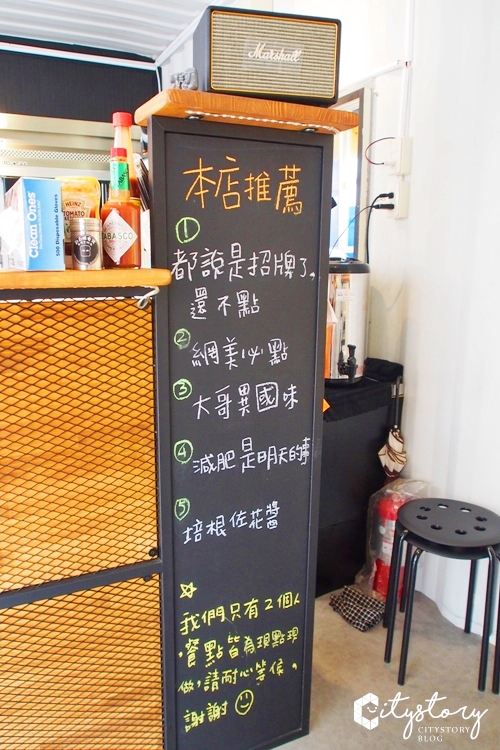 Marshall
本店推薦
①
都說是招牌了,
還不點
② 網美必點
③ 大哥異國味
④ 減肥是明天的事
⑤ 培根佐花醬
☆
我們只有2個人
,餐點皆為現點現
做,請耐心等候。
謝謝☺
Clean Ones
HEINZ
TOMATO
TABASCO
Citystory
CITYSTORY
BLOG